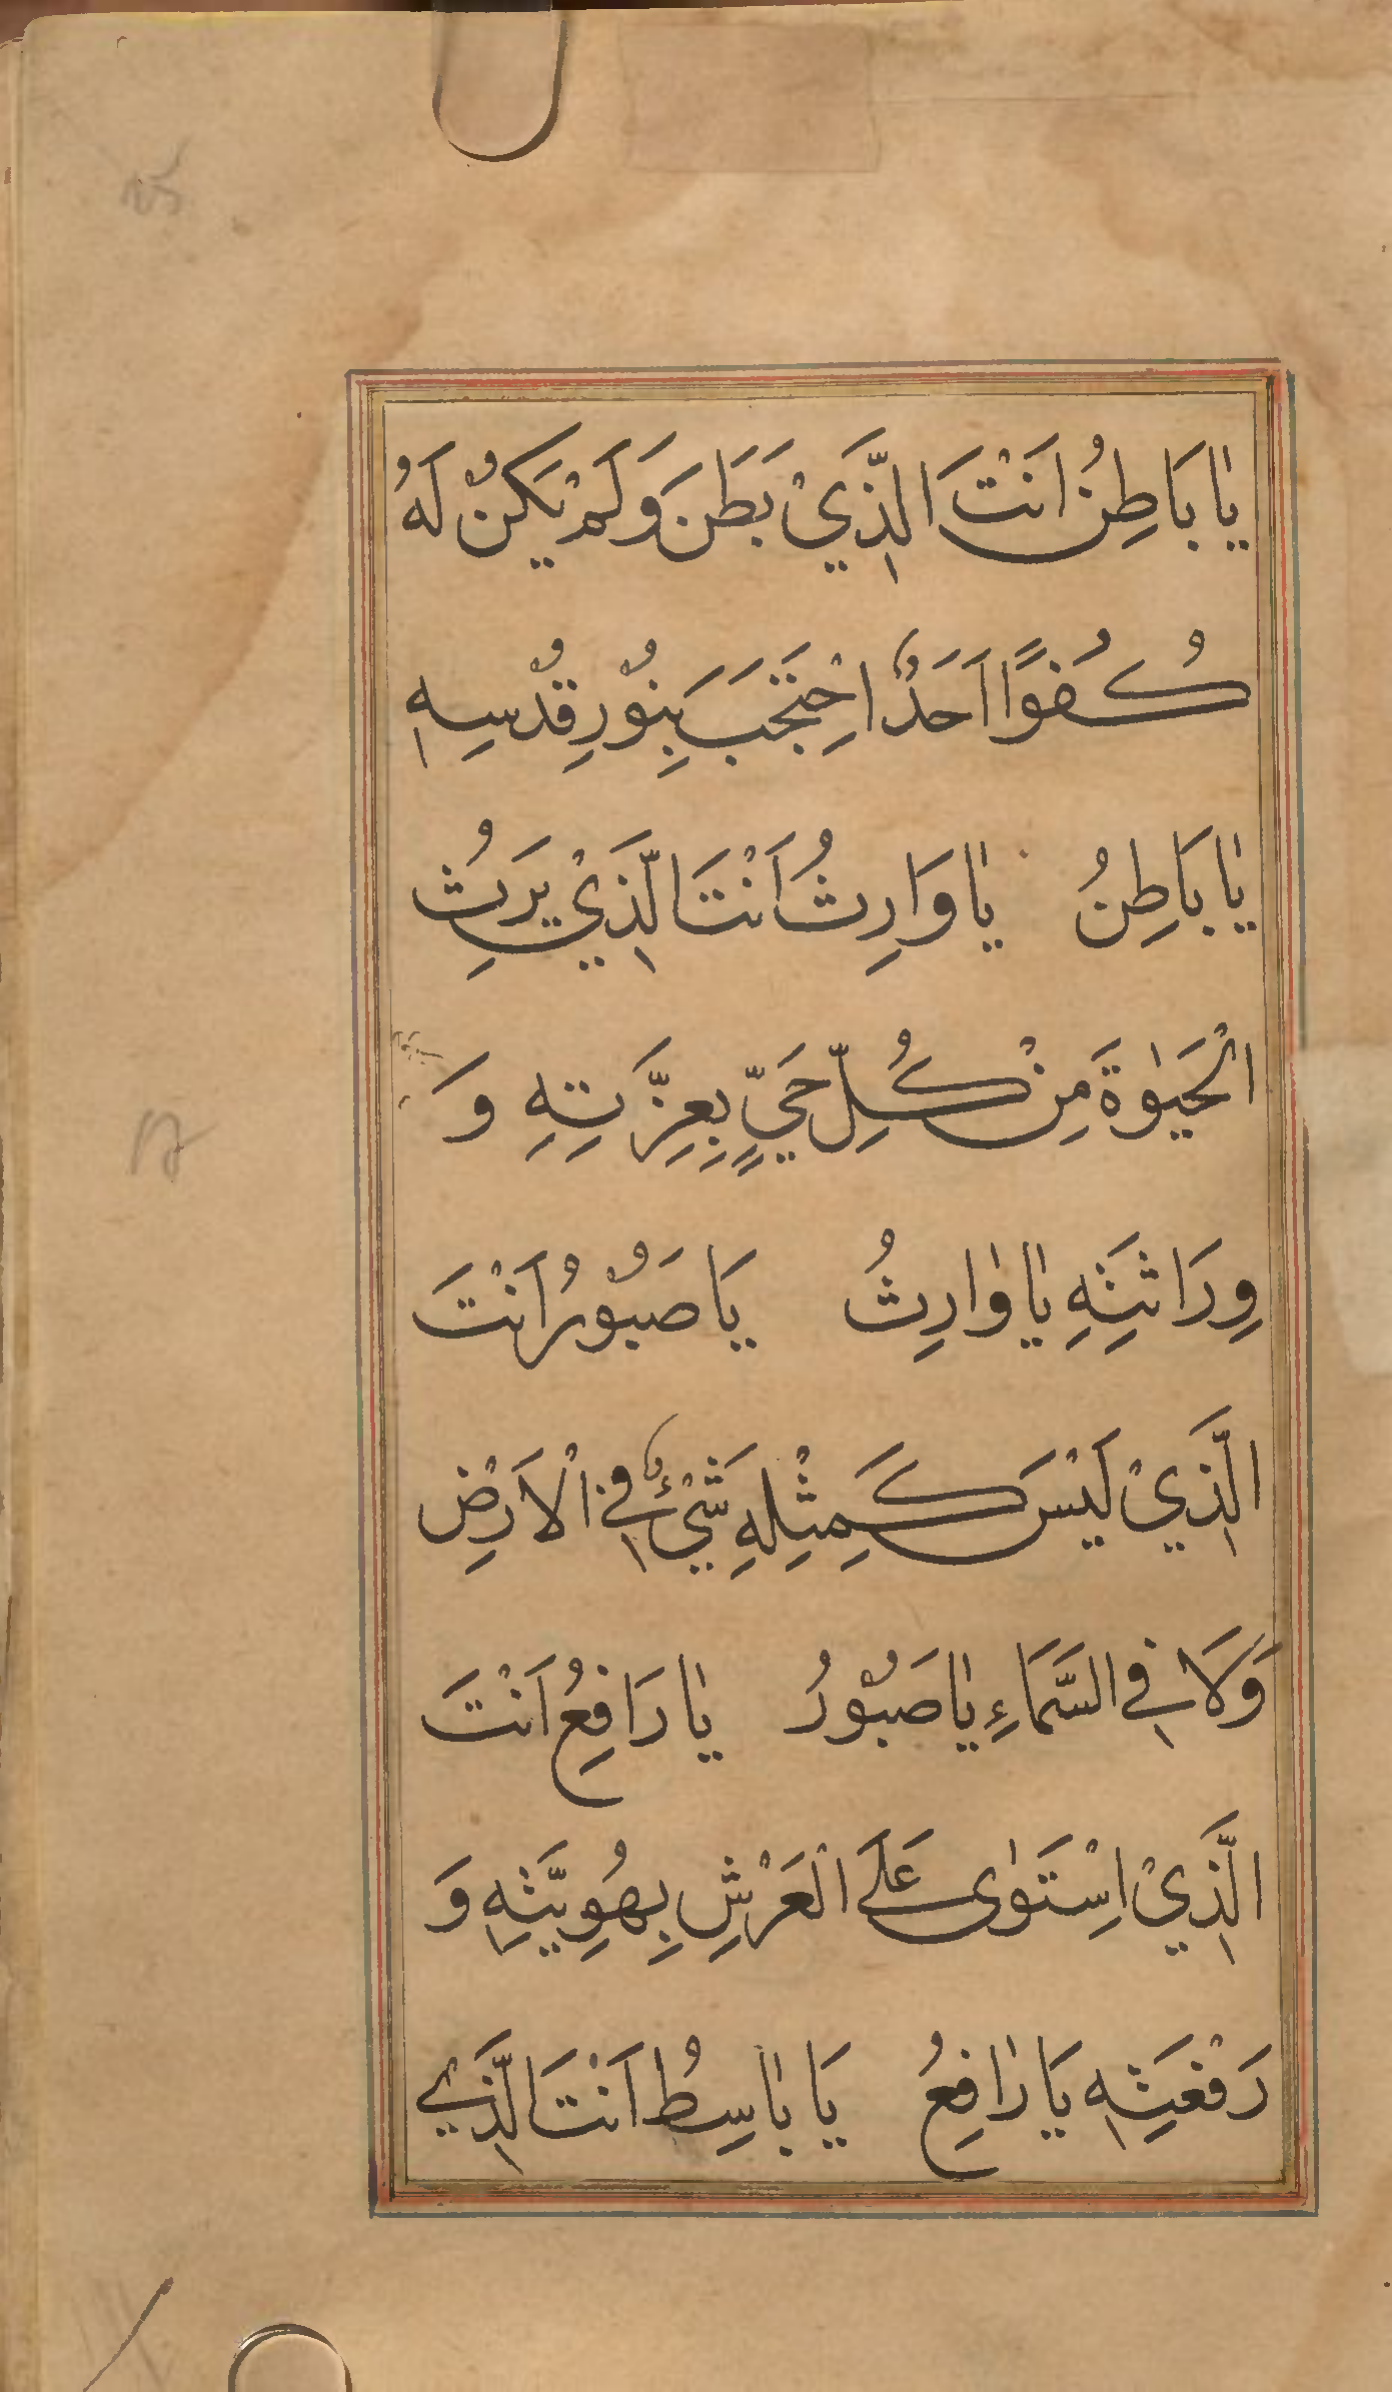 يٰا بَاطِنُ اَنْتَ الَّذِيْ بَطَنَ وَلَمْ يَكُنْ لَهُ
كُفُوًا اَحَدٌ اِحْتَجَبَ بِنُوْرِ قُدْسِهٖ
يٰا بَاطِنُ يٰا وَارِثُ اَنْتَ الَّذِيْ يَرِثُ
الْحَيٰوةَ مِنْ كُلِّ حَيٍّ بِعِزَّتِهِ وَ
وِرَاثَتِهِ يٰا وٰارِثُ يَا صَبُوْرُ اَنْتَ
الَّذِيْ لَيْسَ كَمِثْلِهِ شَيْءٌ فِي الْاَرْضِ
وَلَا فِي السَّمَاءِ يٰا صَبُوْرُ يٰا رَافِعُ اَنْتَ
الَّذِيْ اِسْتَوٰى عَلَى الْعَرْشِ بِهُوِيَّتِهِ وَ
رَفْعَتِهٖ يَا رٰافِعُ يَا بٰاسِطُ اَنْتَ الَّذِيْ